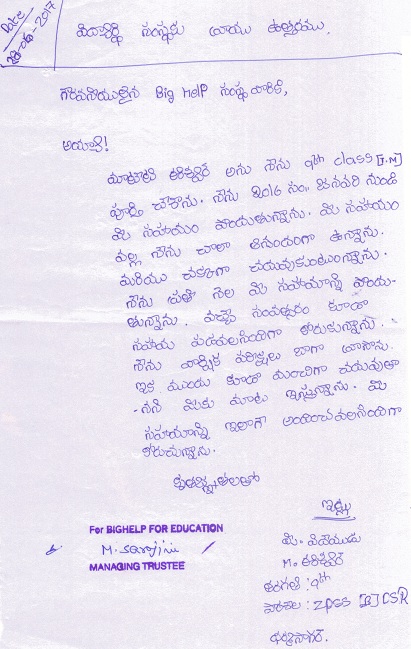 Date
28-04-2017
విద్యార్థి సంస్థకు రాయు ఉత్తరము.
గౌరవనీయులైన Big Help సంస్థ వారికి,
అయ్యా!
అను నేను 9th class [E.M]
పూర్తి చేశాను. నేను 2016 సం. జనవరి నుండి
మీ సహాయం పొందుతున్నాను. మీ సహాయం
వల్ల నేను చాలా ఆనందంగా ఉన్నాను.
మరియు చక్కగా చదువుకుంటున్నాను.
నేను ప్రతి నెల మీ సహాయాన్ని పొందు-
తున్నాను. వచ్చే సంవత్సరం కూడా
సహాయ పడవలసిందిగా కోరుకున్నాను.
నేను వార్షిక పరీక్షలు బాగా రాసాను.
ఇక ముందు కూడా మంచిగా చదువుతా
-నని మీకు మాట ఇస్తున్నాను. మీ
సహాయాన్ని ఇలాగే అందించవలసిందిగా
కోరుచున్నాను.
కృతజ్ఞతలతో
ఇట్లు
మీ. విధేయుడు
M.
తరగతి : 9th
పాఠశాల : ZPSS [B] CSR
For BIGHELP FOR EDUCATION
M. Sarojini
MANAGING TRUSTEE